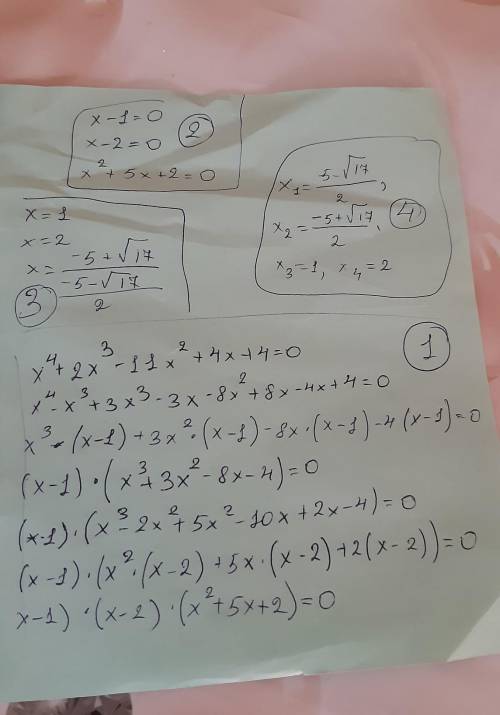 x-1=0
x-2=0
x²+5x+2=0
2
x₁=5-√17/2,
x₂=-5+√17/2.
x₃=1, x₄=2
4
x=1
x=2
x=-5+√17/
-5-√17/2
3
1
x⁴+2x³-11x²+4x+4=0
x⁴-x³+3x³-3x-8x²+8x-4x+4=0
x³-(x-1)+3x²·(x-1)-8x·(x-1)-4(x-1)=0
(x-1)·(x³+3x²-8x-4)=0
(x-1)·(x³-2x²+5x²-10x+2x-4)=0
(x-1)·(x²·(x-2)+5x·(x-2)+2(x-2))=0
x-1)·(x-2)·(x²+5x+2)=0